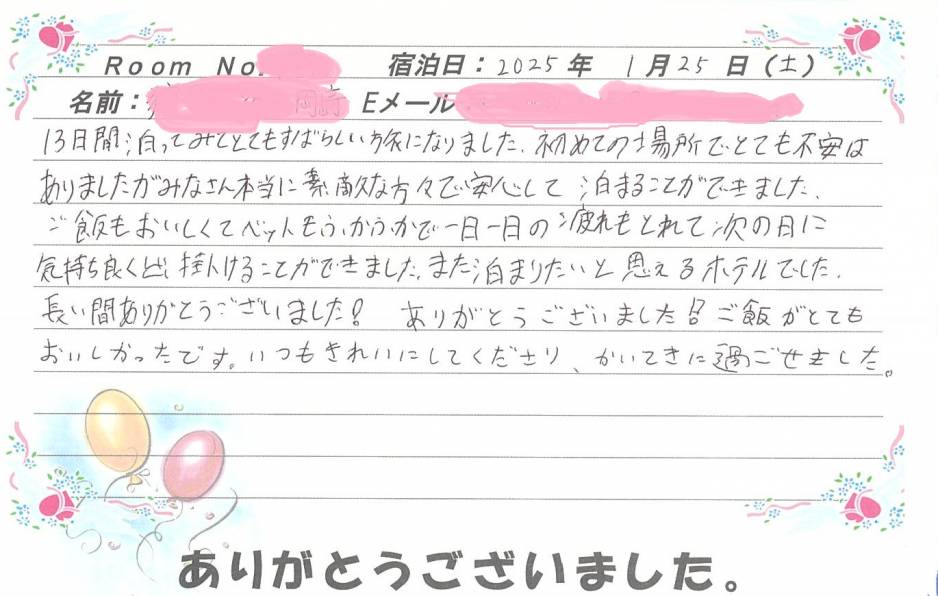 Room No.
宿泊日：2025年 1月25日（土）
名前： Eメール
13日間泊ってみてとてもすばらしい旅になりました。初めての場所でとても不安は
ありましたがみなさん本当に素敵な方々で安心して泊まることができました。
ご飯もおいしくてベットもふかふかで一日一日の疲れもとれて次の日に
気持ち良くど掛けることができました。また泊まりたいと思えるホテルでした。
長い間ありがとうございました! ありがとうございました!! ご飯がとても
おいしかったです。いつもきれいにしてくださり、かいてきに過ごせました。
ありがとうございました。